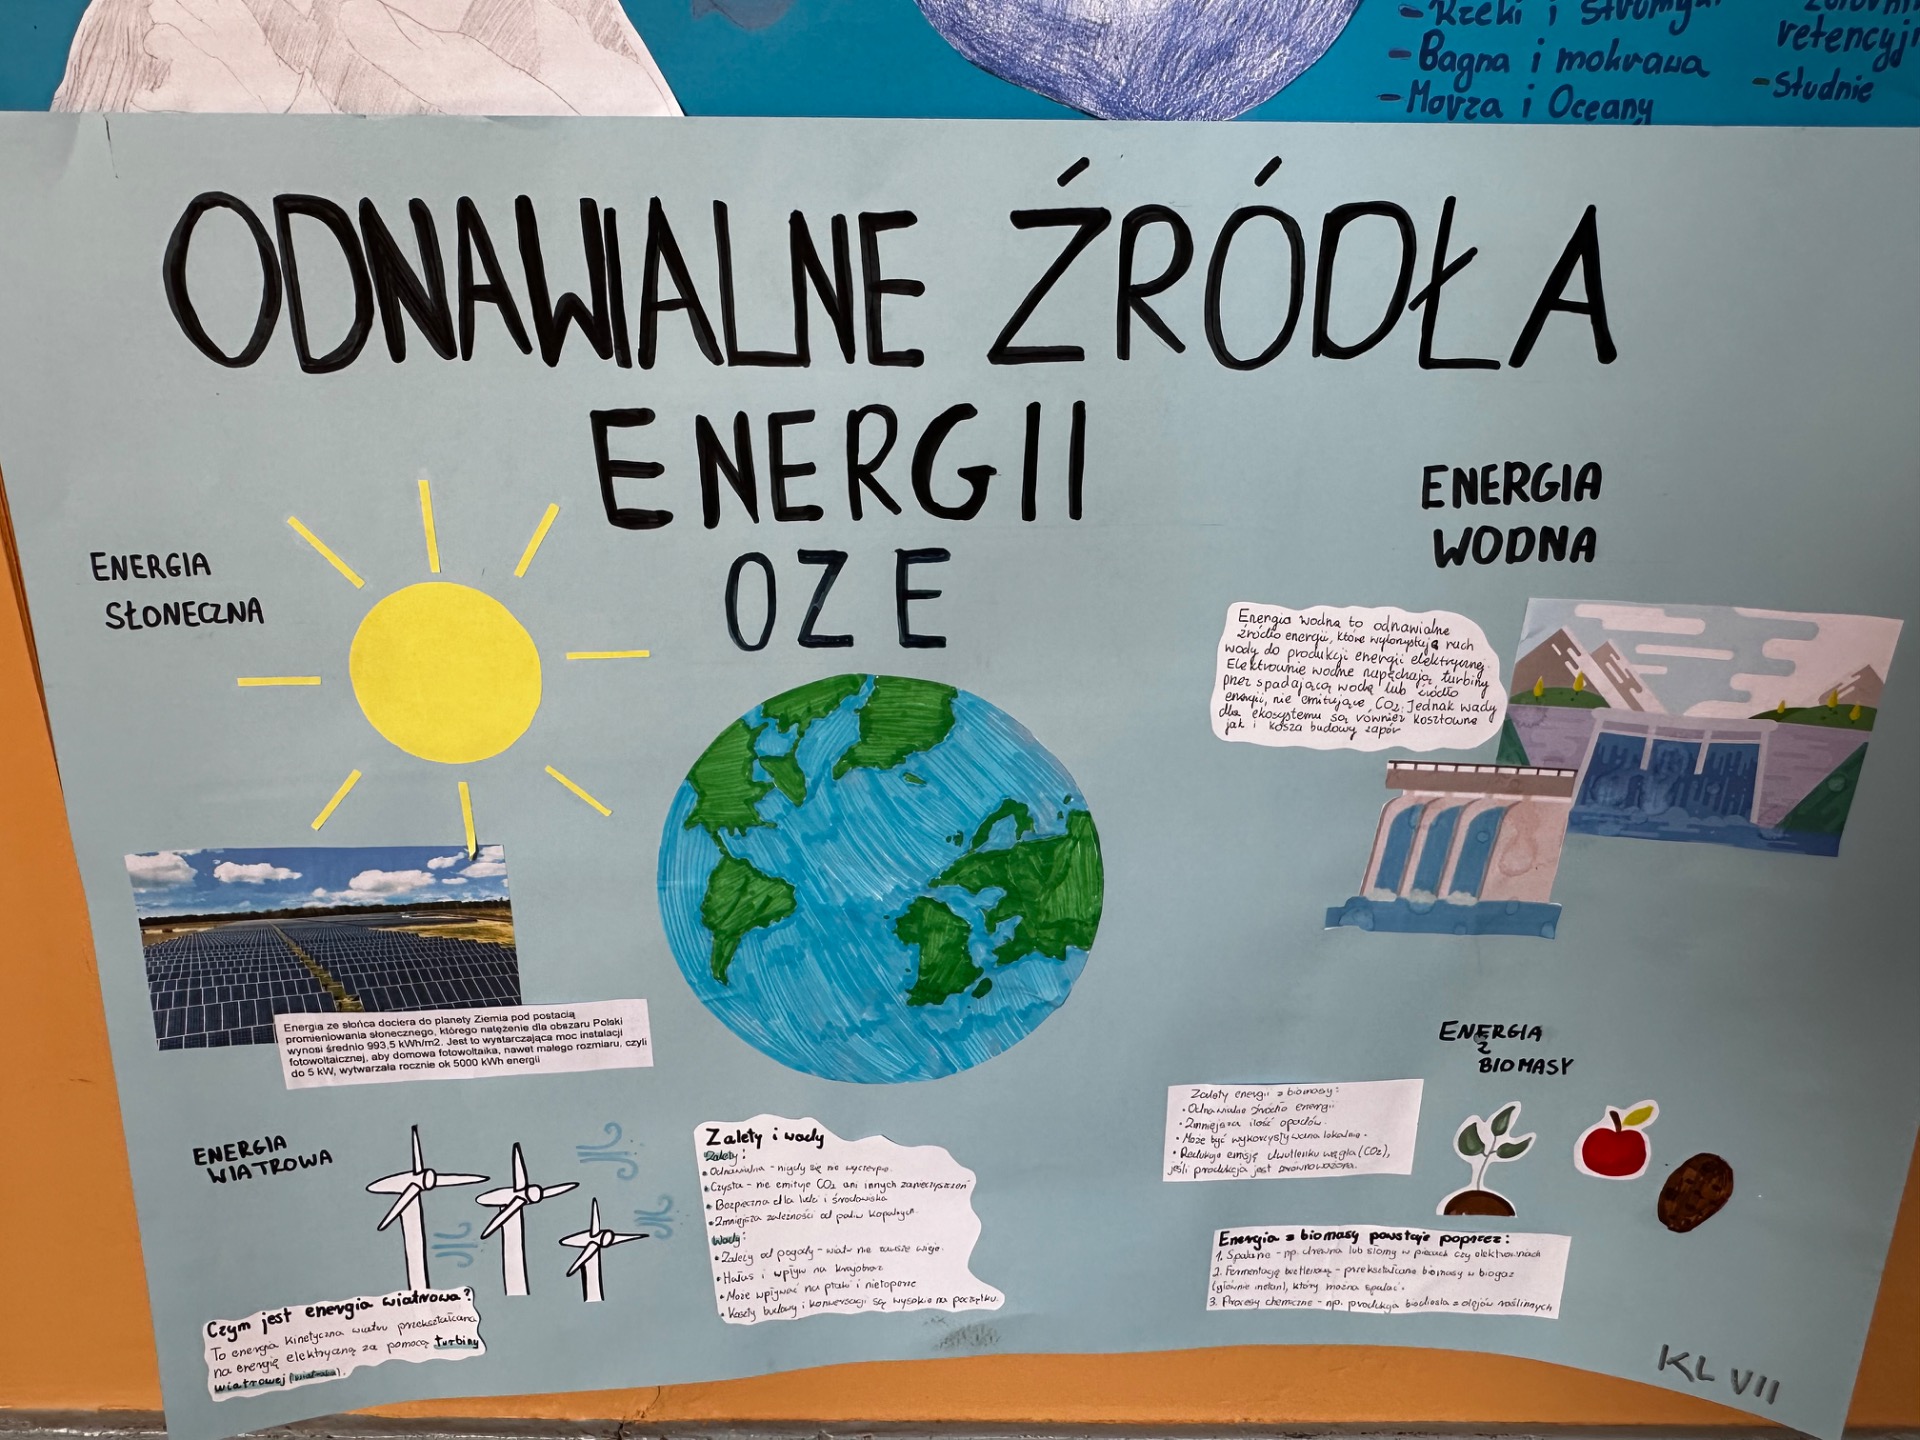 - Rzeki i strumyki
- Bagna i mokrawa
- Morza i Oceany
retencyj
- Studnie
ODNAWIALNE ŹRÓDŁA
ENERGII
OZE
ENERGIA
SŁONECZNA
Energia ze słońca dociera do planety Ziemia pod postacią
promieniowania słonecznego, którego natężenie dla obszaru Polski
wynosi średnio 993,5 kWh/m2. Jest to wystarczająca moc instalacji
fotowoltaicznej, aby domowa fotowoltaika, nawet małego rozmiaru, czyli
do 5 kW, wytwarzała rocznie ok 5000 kWh energii
ENERGIA
WODNA
Energia wodna to odnawialne
źródło energii, które wykorzystuje ruch
wody do produkcji energii elektrycznej.
Elektrownie wodne napędzają turbiny
przez spadającą wodę lub źródło
energii, nie emitujące CO2. Jednak wady
dla ekosystemu są również kosztowne
jak i kosza budowy zapór
ENERGIA
WIATROWA
Czym jest energia wiatrowa?
To energia kinetyczna wiatru przekształcana
na energię elektryczną za pomocą turbiny
wiatrowej
Zalety i wady
Zalety:
• Odnawialna - nigdy się nie wyczerpie.
• Czysta - nie emituje CO2 ani innych zanieczyszczeń
• Bezpieczna dla ludzi i środowiska
• Zmniejsza zależności od paliw kopalnych.
Wady:
• Zależy od pogody - wiatr nie zawsze wieje.
• Hałas i wpływ na krajobraz
• Może wpływać na ptaki i nietoperze
• Koszty budowy i konserwacji są wysokie na początku.
ENERGIA
Z
BIOMASY
Zalety energii z biomasy:
• Odnawialne źródło energii
• Zmniejsza ilość opadów.
• Może być wykorzystywana lokalnie.
• Redukuje emisję dwutlenku węgla (CO2),
jeśli produkcja jest zrównoważona.
Energia z biomasy powstaje poprzez:
1. Spalanie - np. drewna lub słomy w piecach czy elektrowniach
2. Fermentację beztlenową - przekształcanie biomasy w biogaz
(głównie metan), który można spalać.
3. Procesy chemiczne - np. produkcja biodiesla z olejów roślinnych
KL VII